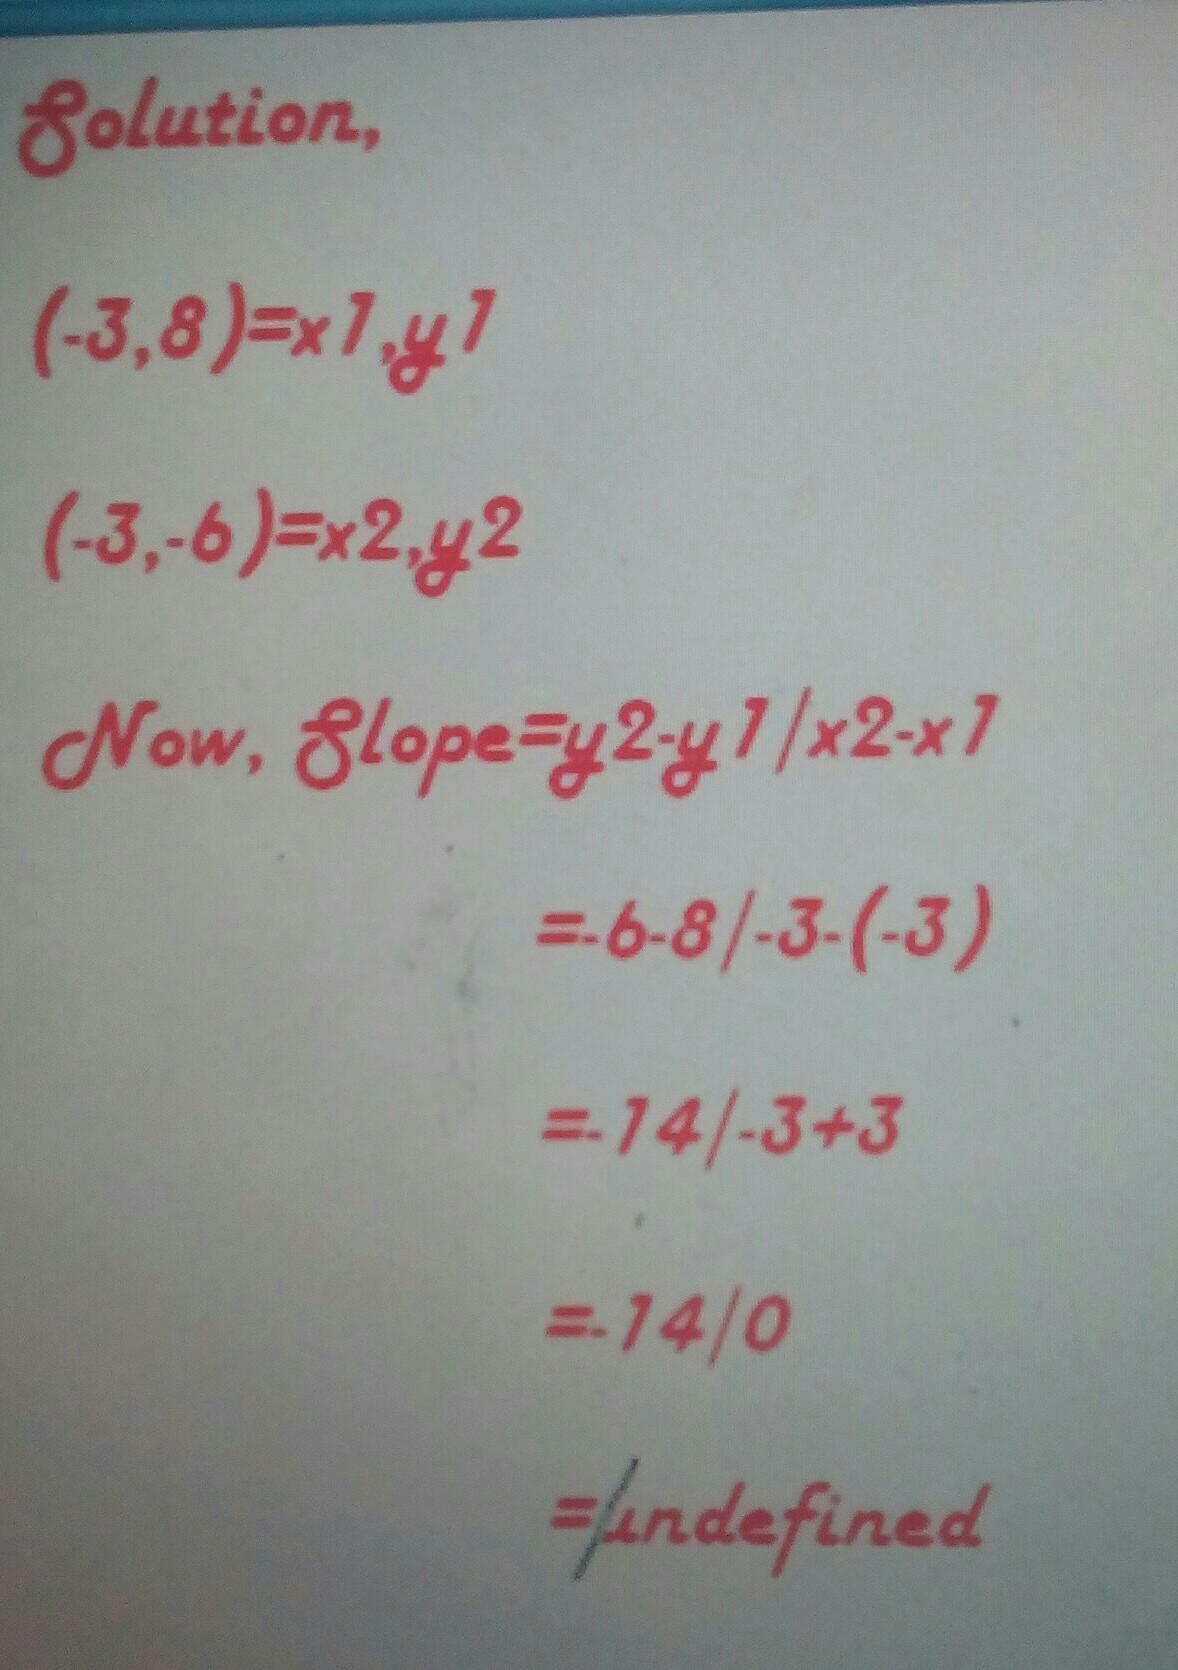 Solution,
(-3,8)=x1,y1
(-3,-6)=x2,y2
Now, Slope=y2-y1/x2-x1
=-6-8/-3-(-3)
=-14/-3+3
=-14/0
=undefined